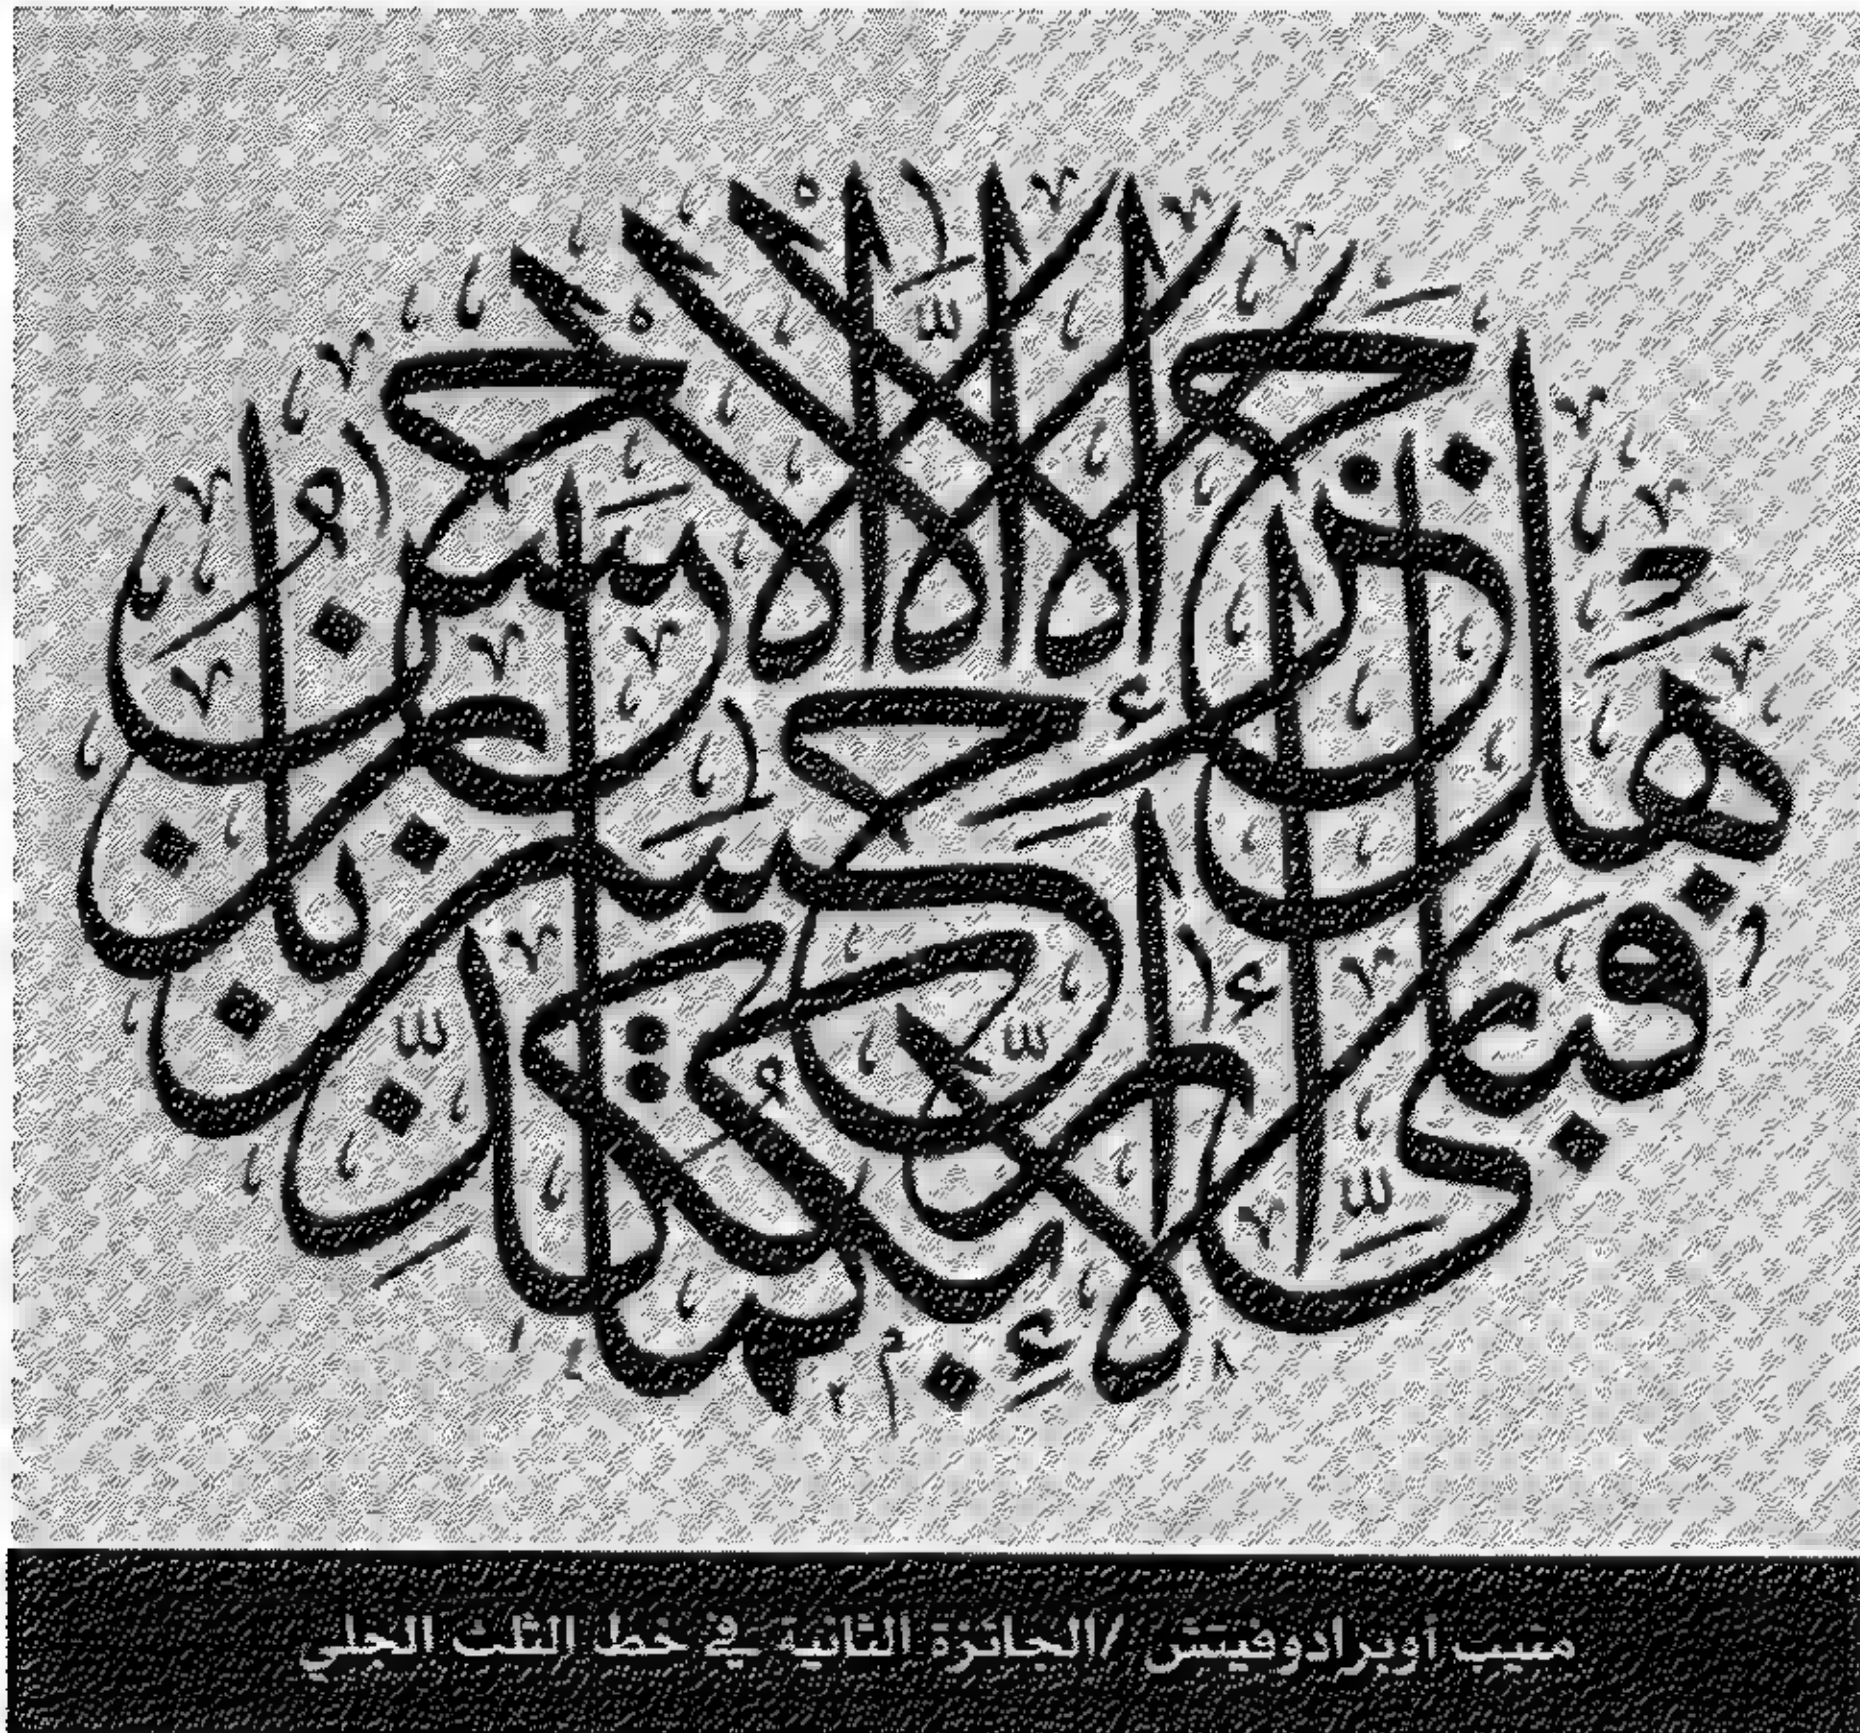 هل جزاء الإحسان إلا الإحسان فبأي آلاء ربكما تكذبان
منيب أوبرادوفيتش /الجائزة الثانية في خط الثلث الجلي